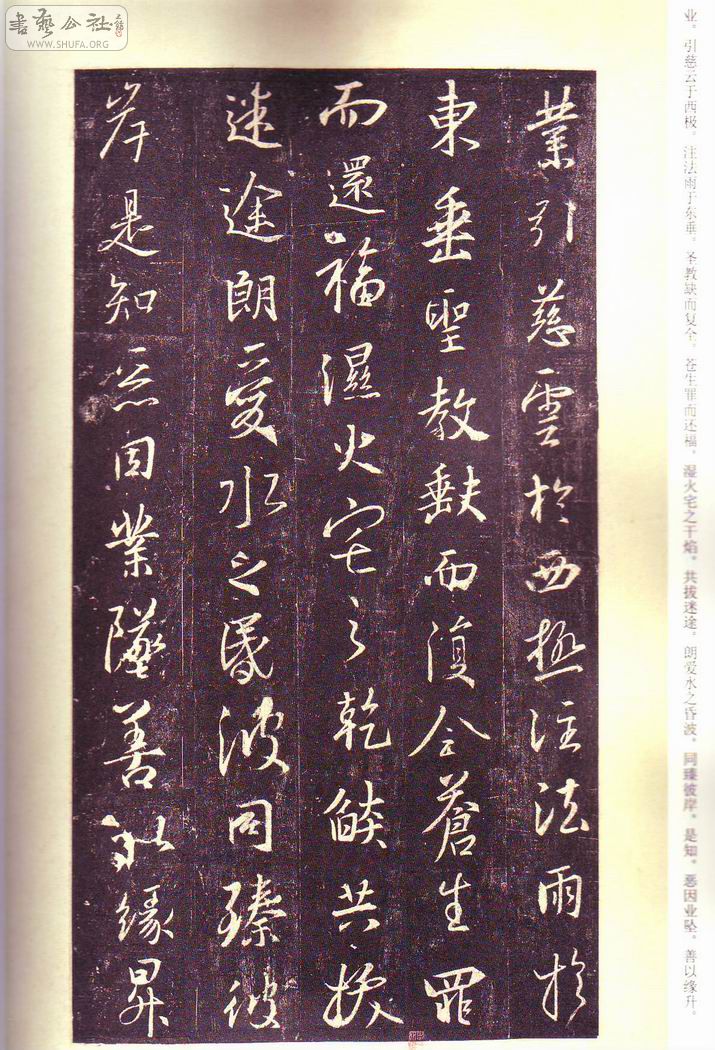 書藝公社
WWW.SHUFA.ORG
業引慈雲於西極注法雨於
東垂聖教缺而復全蒼生罪
而還福濕火宅之乾燄共拔
迷途朗愛水之昏波同臻彼
岸是知惡因業墜善以緣昇
业。引慈云于西极。注法雨于东垂。圣教缺而复全。苍生罪而还福。湿火宅之干焰。共拔迷途。朗爱水之昏波。同臻彼岸。是知。恶因业坠。善以缘升。